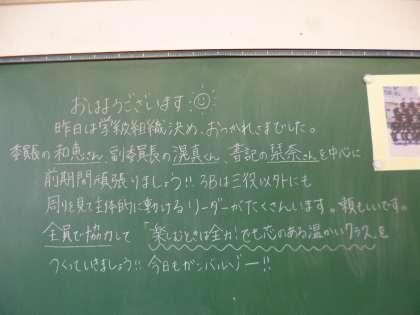 おはようございます
昨日は学級組織決め、おつかれさまでした。
委員長の和恵さん、副委員長の滉真くん、書記の栞奈さんを中心に
前期間頑張りましょう!! 3Bは三役以外にも
周りを見て主体的に動けるリーダーがたくさんいます。頼もしいです。
全員で協力して「楽しむときは全力♪でも芯のある温かいクラス」を
つくっていきましょう!! 今日もガンバルゾー!!